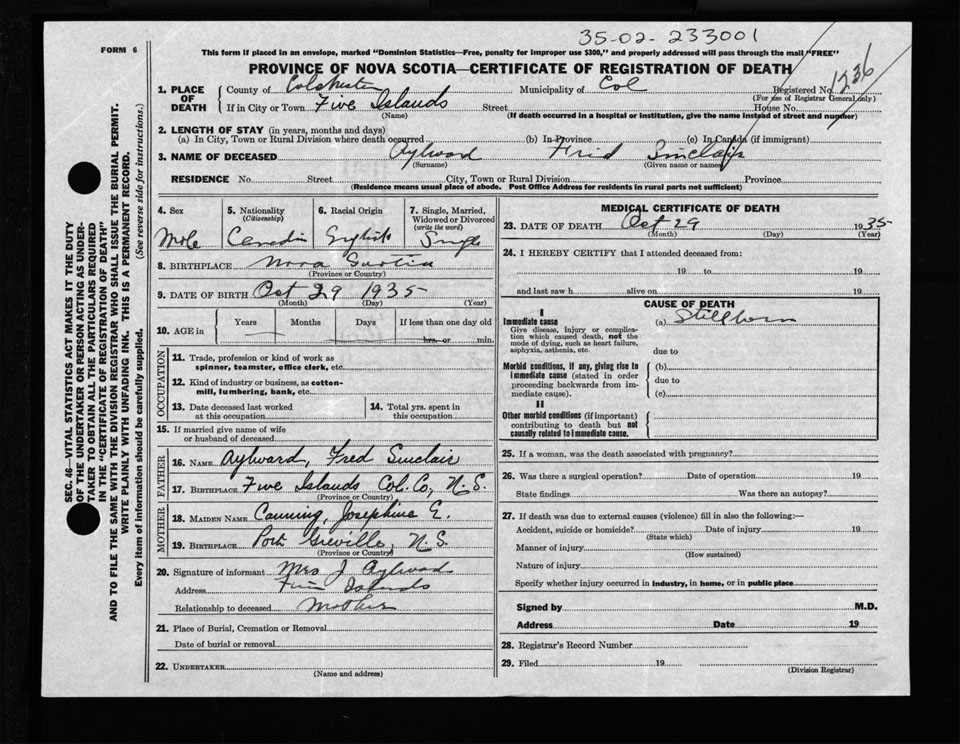 35-02-233001
FORM 6
This form if placed in an envelope, marked "Dominion Statistics—Free, penalty for improper use $300," and properly addressed will pass through the mail "FREE"
PROVINCE OF NOVA SCOTIA—CERTIFICATE OF REGISTRATION OF DEATH
1. PLACE OF DEATH
County of Colchester Municipality of Col Registered No. 1236
(For use of Registrar General only)
If in City or Town Five Islands Street House No.
(Name) (If death occurred in a hospital or institution, give the name instead of street and number)
2. LENGTH OF STAY (in years, months and days)
(a) In City, Town or Rural Division where death occurred (b) In Province (c) In Canada (if immigrant)
3. NAME OF DECEASED Aylward Fred Sinclair
(Surname) (Given name or names)
RESIDENCE No. Street City, Town or Rural Division Province
(Residence means usual place of abode. Post Office Address for residents in rural parts not sufficient)
4. Sex
Male
5. Nationality
(Citizenship)
Canadin
6. Racial Origin
English
7. Single, Married, Widowed or Divorced
(write the word)
Single
8. BIRTHPLACE Nova Scotia
(Province or Country)
9. DATE OF BIRTH Oct 29 1935
(Month) (Day) (Year)
10. AGE in Years Months Days If less than one day old
hrs. or min.
OCCUPATION
11. Trade, profession or kind of work as
spinner, teamster, office clerk, etc.
12. Kind of industry or business, as cotton-
mill, lumbering, bank, etc.
13. Date deceased last worked
at this occupation
14. Total yrs. spent in
this occupation
15. If married give name of wife
or husband of deceased
FATHER
16. NAME Aylward, Fred Sinclair
17. BIRTHPLACE Five Islands Col. Co, N.S.
(Province or Country)
MOTHER
18. MAIDEN NAME Canning, Josephine E.
19. BIRTHPLACE Port Greville, N.S.
(Province or Country)
20. Signature of informant Mrs J Aylward
Address Five Islands
Relationship to deceased Mother
21. Place of Burial, Cremation or Removal
Date of burial or removal
22. UNDERTAKER
(Name and address)
MEDICAL CERTIFICATE OF DEATH
23. DATE OF DEATH Oct 29 1935
(Month) (Day) (Year)
24. I HEREBY CERTIFY that I attended deceased from:
19 to 19
and last saw h alive on 19
CAUSE OF DEATH
I
Immediate cause
(a) Stillborn
Give disease, injury or complica-
tion which caused death, not the
mode of dying, such as heart failure,
asphyxia, asthenia, etc.
due to
Morbid conditions, if any, giving rise to
immediate cause (stated in order
proceeding backwards from im-
mediate cause).
(b)
due to
(c)
II
Other morbid conditions (if important)
contributing to death but not
causally related to immediate cause.
25. If a woman, was the death associated with pregnancy?
26. Was there a surgical operation? Date of operation 19
State findings Was there an autopsy?
27. If death was due to external causes (violence) fill in also the following:—
Accident, suicide or homicide? Date of injury 19
(State which)
Manner of injury
(How sustained)
Nature of injury
Specify whether injury occurred in industry, in home, or in public place
Signed by M.D.
Address Date 19
28. Registrar's Record Number
29. Filed 19
(Division Registrar)
SEC. 46—VITAL STATISTICS ACT MAKES IT THE DUTY
OF THE UNDERTAKER OR PERSON ACTING AS UNDER-
TAKER TO OBTAIN ALL THE PARTICULARS REQUIRED
IN THE "CERTIFICATE OF REGISTRATION OF DEATH"
AND TO FILE THE SAME WITH THE DIVISION REGISTRAR WHO SHALL ISSUE THE BURIAL PERMIT.
WRITE PLAINLY WITH UNFADING INK. THIS IS A PERMANENT RECORD.
Every item of information should be carefully supplied. (See reverse side for instructions.)